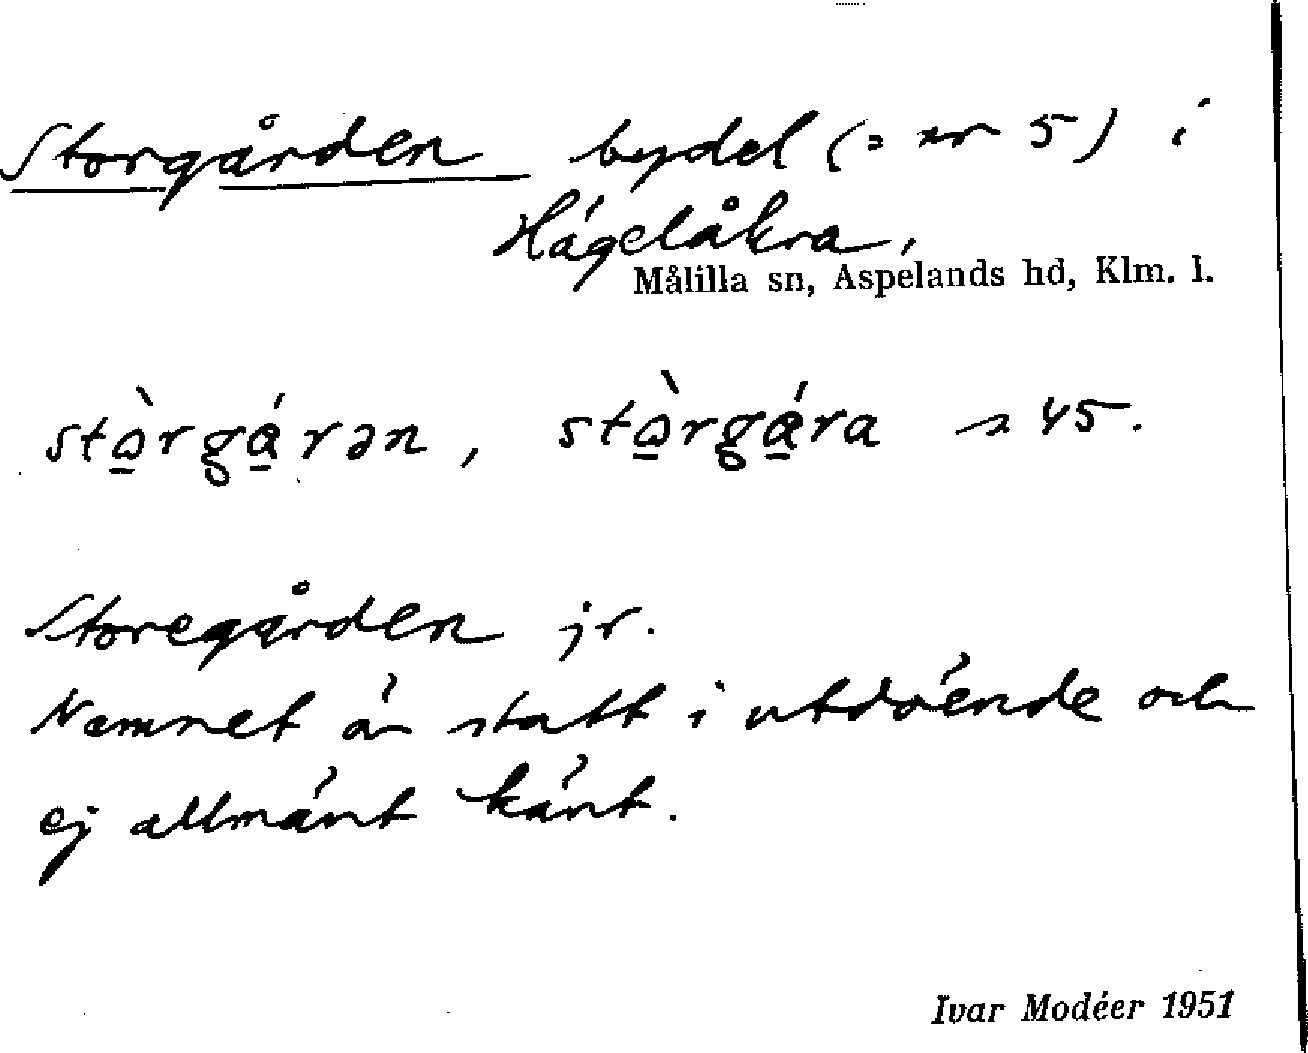 Storgården bydel (= nr 5) i
Hägelåkra,
Målilla sn, Aspelands hd, Klm. l.
Storegården jr.
Namnet är statt i utdöende och
ej allmänt känt.
Ivar Modéer 1951